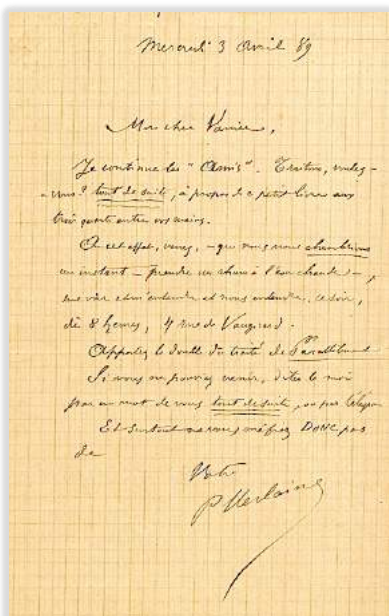 Mercredi 3 Avril 89
Mon cher Vanier,
Je continue les "Amis". Traitons, voulez-
-vous? tout de suite, à propos de ce petit livre aux
trois quarts entre vos mains.
A cet effet, venez, - que nous nous
un instant - prendre un rhum à l'eau chaude -,
me voir et m'entendre et nous entendre, ce soir,
dès 8 heures, 4 rue de Vaugirard.
Apportez le double du traité de Parallèlement
Si vous ne pouviez venir, dites le moi
par un mot de vous tout de suite, ou par
Et surtout ne vous méfiez DONC pas
de
Votre
P Verlaine